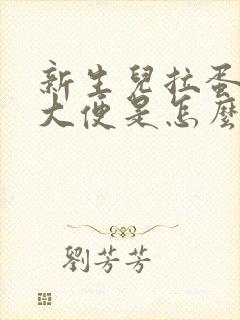 新生兒拉蛋
大便是怎麼
劉芳芳